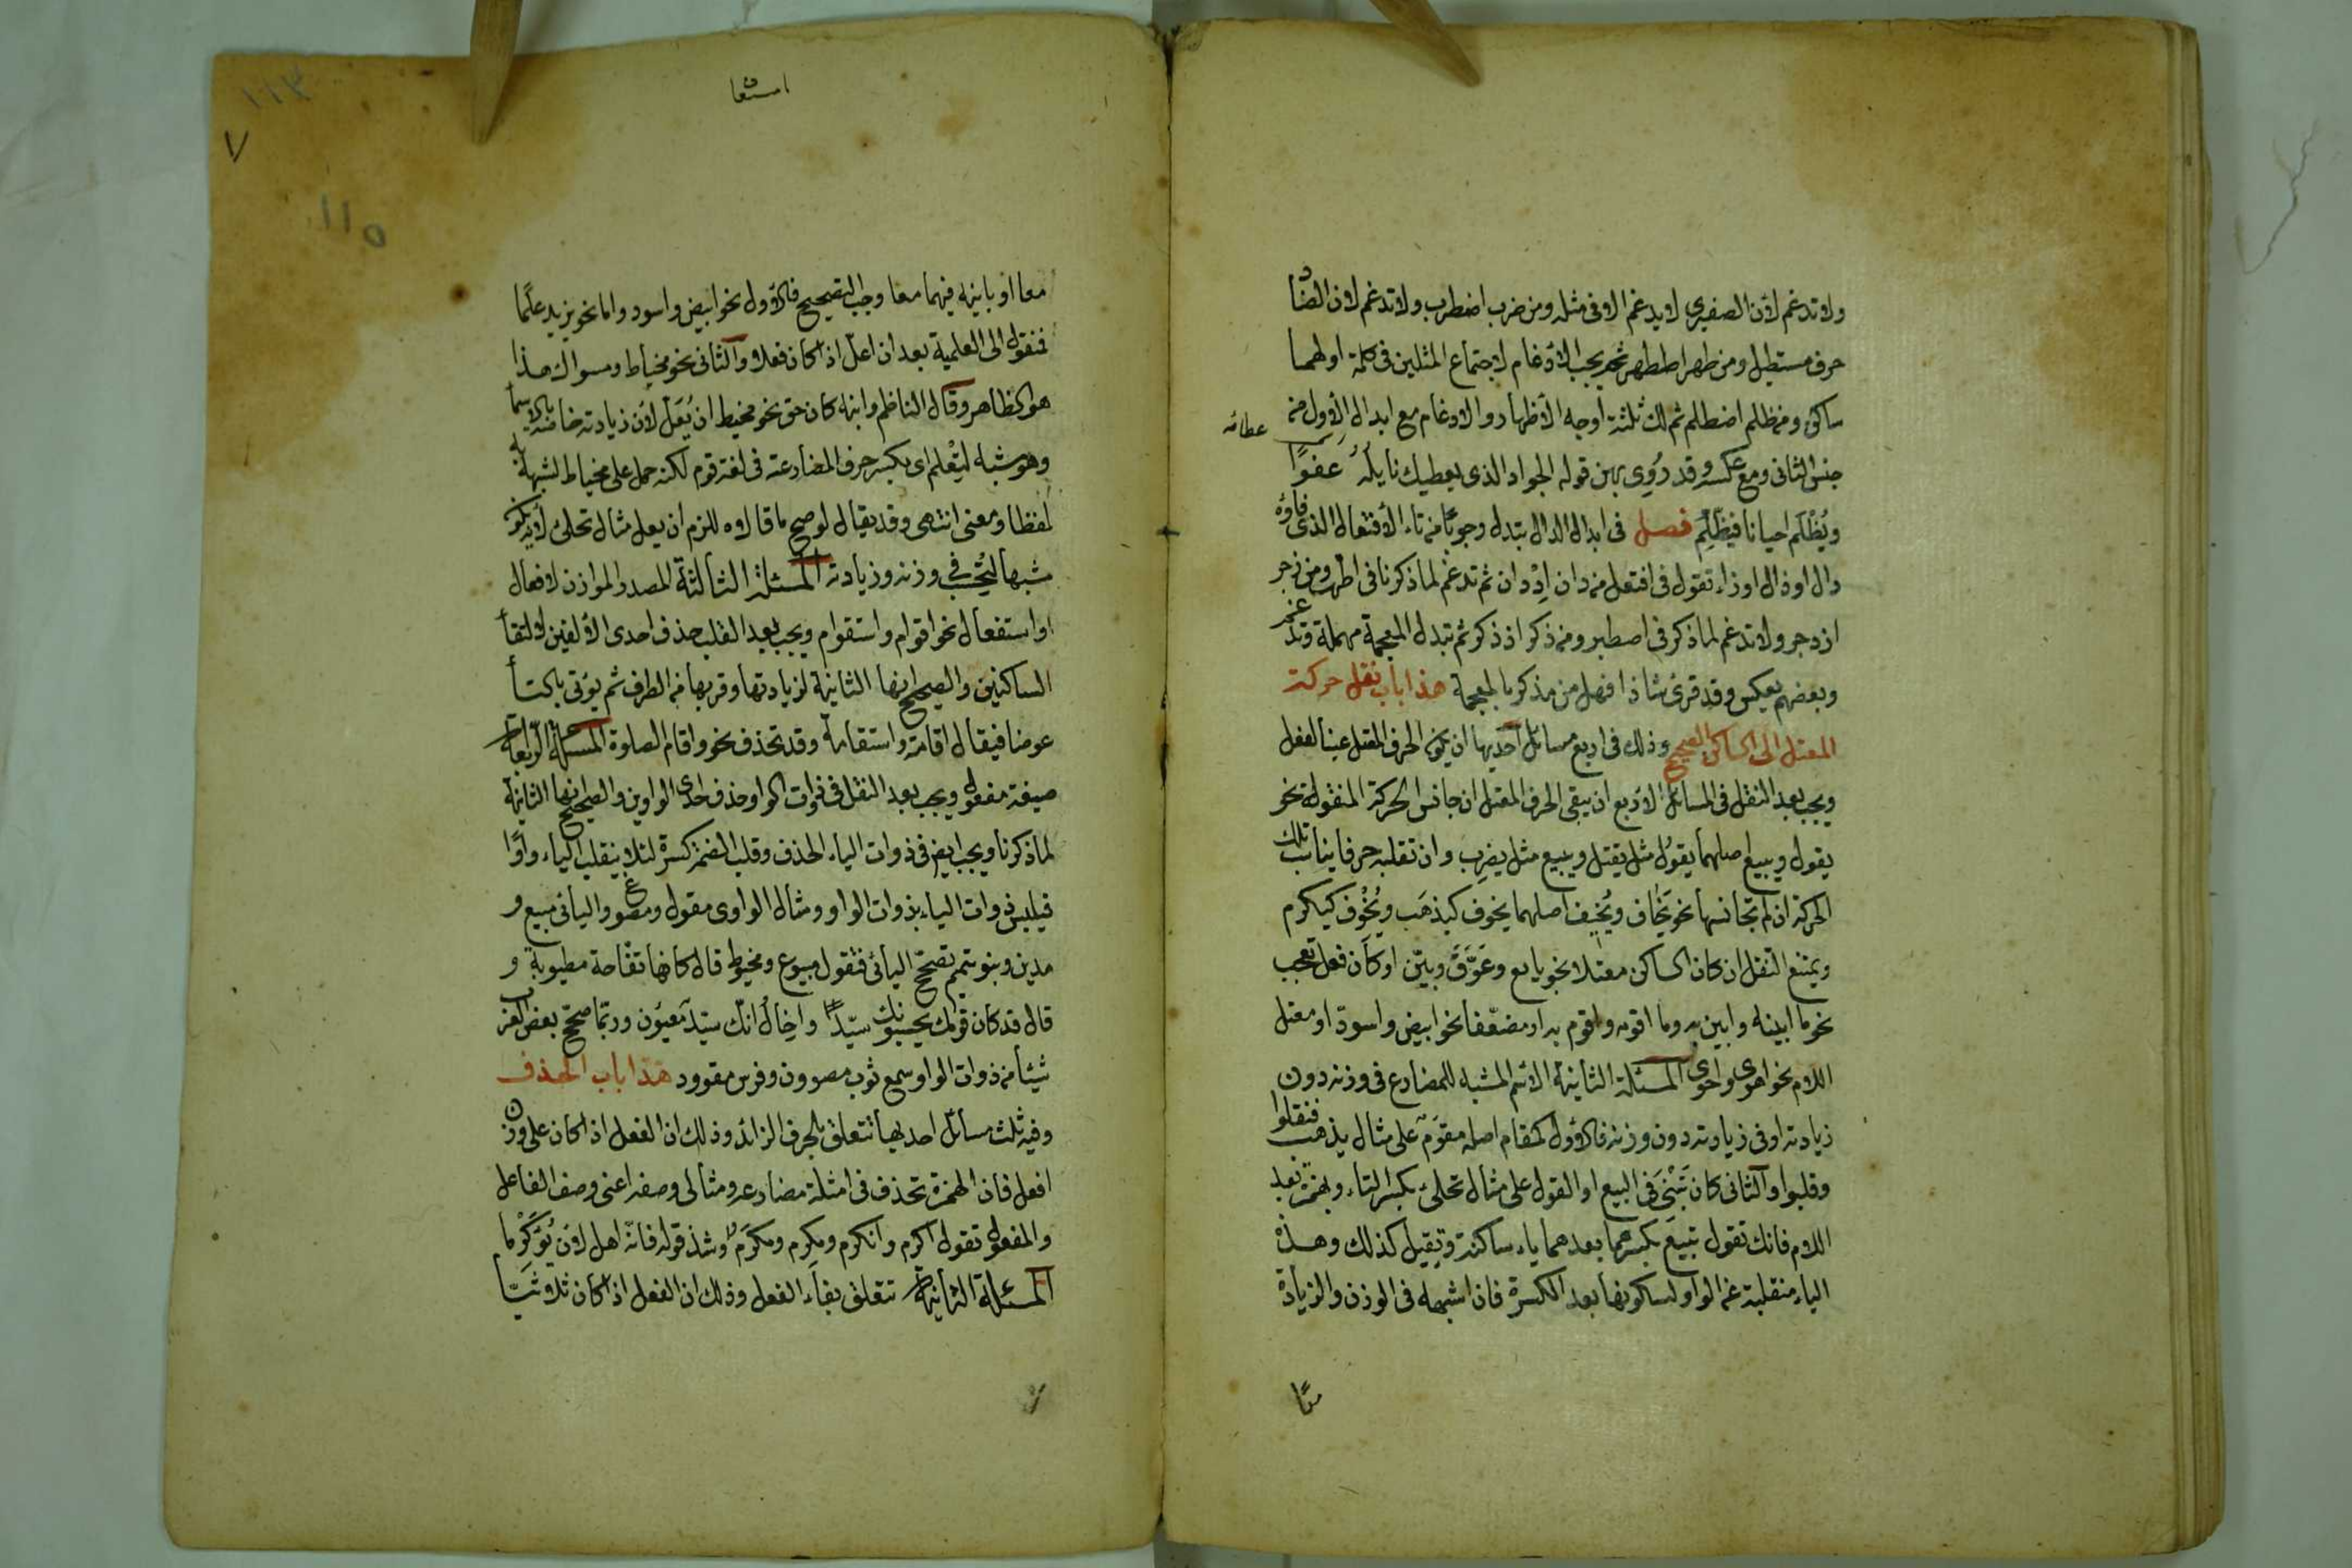 ولا تدغم لان الصفيرى لا يدغم الا فى مثله ومن ضرب اضطرب ولا تدغم لان الضاد
حرف مستطيل ومن طهر اططهر ثم يجب الادغام لاجتماع المثلين فى كلمة اولهما
ساكن ومن ظلم اظطلم ثم لك ثلثة اوجه الاظهار والادغام مع ابدال الاول من
جنس الثانى ومع عكسه وقد رُوِى بهن قوله الجواد الذى يعطيك نايلَهُ عفوًا
ويُظْلَم احيانا فيظّلِم فصل فى ابدال الدال تبدل وجوبًا من تاء الافتعال الذى فاؤه
دال او ذال او زاء تقول فى افتعل من دان اِدْدان ثم تدغم لما ذكرنا فى اطّهر ومن زجر
ازدجر ولا تدغم لما ذكر فى اصطبر ومن ذكر اذدكر ثم تبدل المعجمة مهملة وتدغم
وبعضهم يعكس وقد قرئ شاذا فهل من مذكر بالمعجمة هذا باب نقل حركة
المعتل الى الساكن الصحيح وذلك فى اربع مسائل احديها ان يكون الحرف المعتل عينا لفعل
ويجب بعد النقل فى المسائل الاربع ان يبقى الحرف المعتل ان جانس الحركة المنقولة نحو
يقول ويبيع اصلهما يقوُل مثل يقتل ويبيع مثل يضرِب وان تقلبه حرفا يناسب تلك
الحركة ان لم تجانسها نحو يَخاف ويُخيف اصلهما يخوف كيذهَب ويُخْوِف كيكرم
ويمتنع النقل ان كان الساكن معتلا نحو بايع وعوّق وبيّن او كان فعل تعجب
نحو ما ابينه وابين به وما اقومه واقوم به او مضعّفا نحو ابيض واسودّ او معتل
اللام نحو اهوى واحوى المسئلة الثانية الاسم المشبه للمضارع فى وزنه دون
زيادته او فى زيادته دون وزنه فالاول كمقام اصله مقوَم على مثال يذهب فنقلوا
وقلبوا والثانى كان تَبْنَى فى البيع او القول على مثال تحلئ بكسر التاء وبهمزة بعد
اللام فانك تقول تبيع بكسرهما بعدهما ياء ساكنة وتِقيل كذلك وهذه
الياء منقلبة عن الواو لسكونها بعد الكسرة فان اشبهه فى الوزن والزيادة
عطائه
معًا
امتقا
معا او باينه فيهما معا وجب التصحيح فالاول نحو ابيض واسود واما نحو يزيد علمًا
فمنقول الى العلمية بعد ان اعلّ اذ كان فعلا والثانى نحو مخياط ومسواك هذا
هو الظاهر وقال الناظم وابنه كان حق نحو مخيط ان يُعَلّ لان زيادته خاصة بالاسماء
وهو شبه لتِعْلم اى بكسر حرف المضارعة فى لغة قوم لكنه حمل على مخياط لشبهه به
لفظا ومعنى انتهى وقد يقال لو صح ما قالاه للزم ان يعل مثال تحلئ لانه يكون
مشبها لتحسب فى وزنه وزيادته المسئلة الثالثة المصدر الموازن لافعال
او استفعال نحو اقوام واستقوام ويجب بعد القلب حذف احدى الالفين لالتقاء
الساكنين والصحيح انها الثانية لزيادتها وقربها من الطرف ثم يؤتى بالتاء
عوضا فيقال اقامة واستقامة وقد تحذف نحو واقام الصلوة المسئلة الرابعة
صيغة مفعول ويجب بعد النقل فى ذوات الواو حذف احدى الواوين والصحيح انها الثانية
لما ذكرنا ويجب ايضا فى ذوات الياء الحذف وقلب الضمة كسرة لئلا ينقلب الياء واوًا
فيلبس ذوات الياء بذوات الواو ومثال الواوى مقول ومصوغ واليائى مبيع و
مدين وبنو تميم تصحّح اليائى فتقول مبيوع ومخيوط قال كانها تفّاحة مطيوبة و
قال قد كان قومك يحسبونك سيّدًا واخالُ انّك سيّد معيون وربّما صحّح بعض العرب
شيئا من ذوات الواو سمع ثوب مصوون وفرس مقوود هذا باب الحذف
وفيه ثلث مسائل احديها تتعلق بالحرف الزائد وذلك ان الفعل اذا كان على وزن
افعل فان الهمزة تحذف فى امثلة مضارعه ومثالى وصفه اعنى وصف الفاعل
والمفعول تقول اكرم وانكرم ومكرِم ومكرَم وشذ قوله فانه اهل لان يُؤَكْرما
المسئلة الثانية تتعلق بفاء الفعل وذلك ان الفعل اذا كان ثلاثيّا
٧
١١٣
١١٥